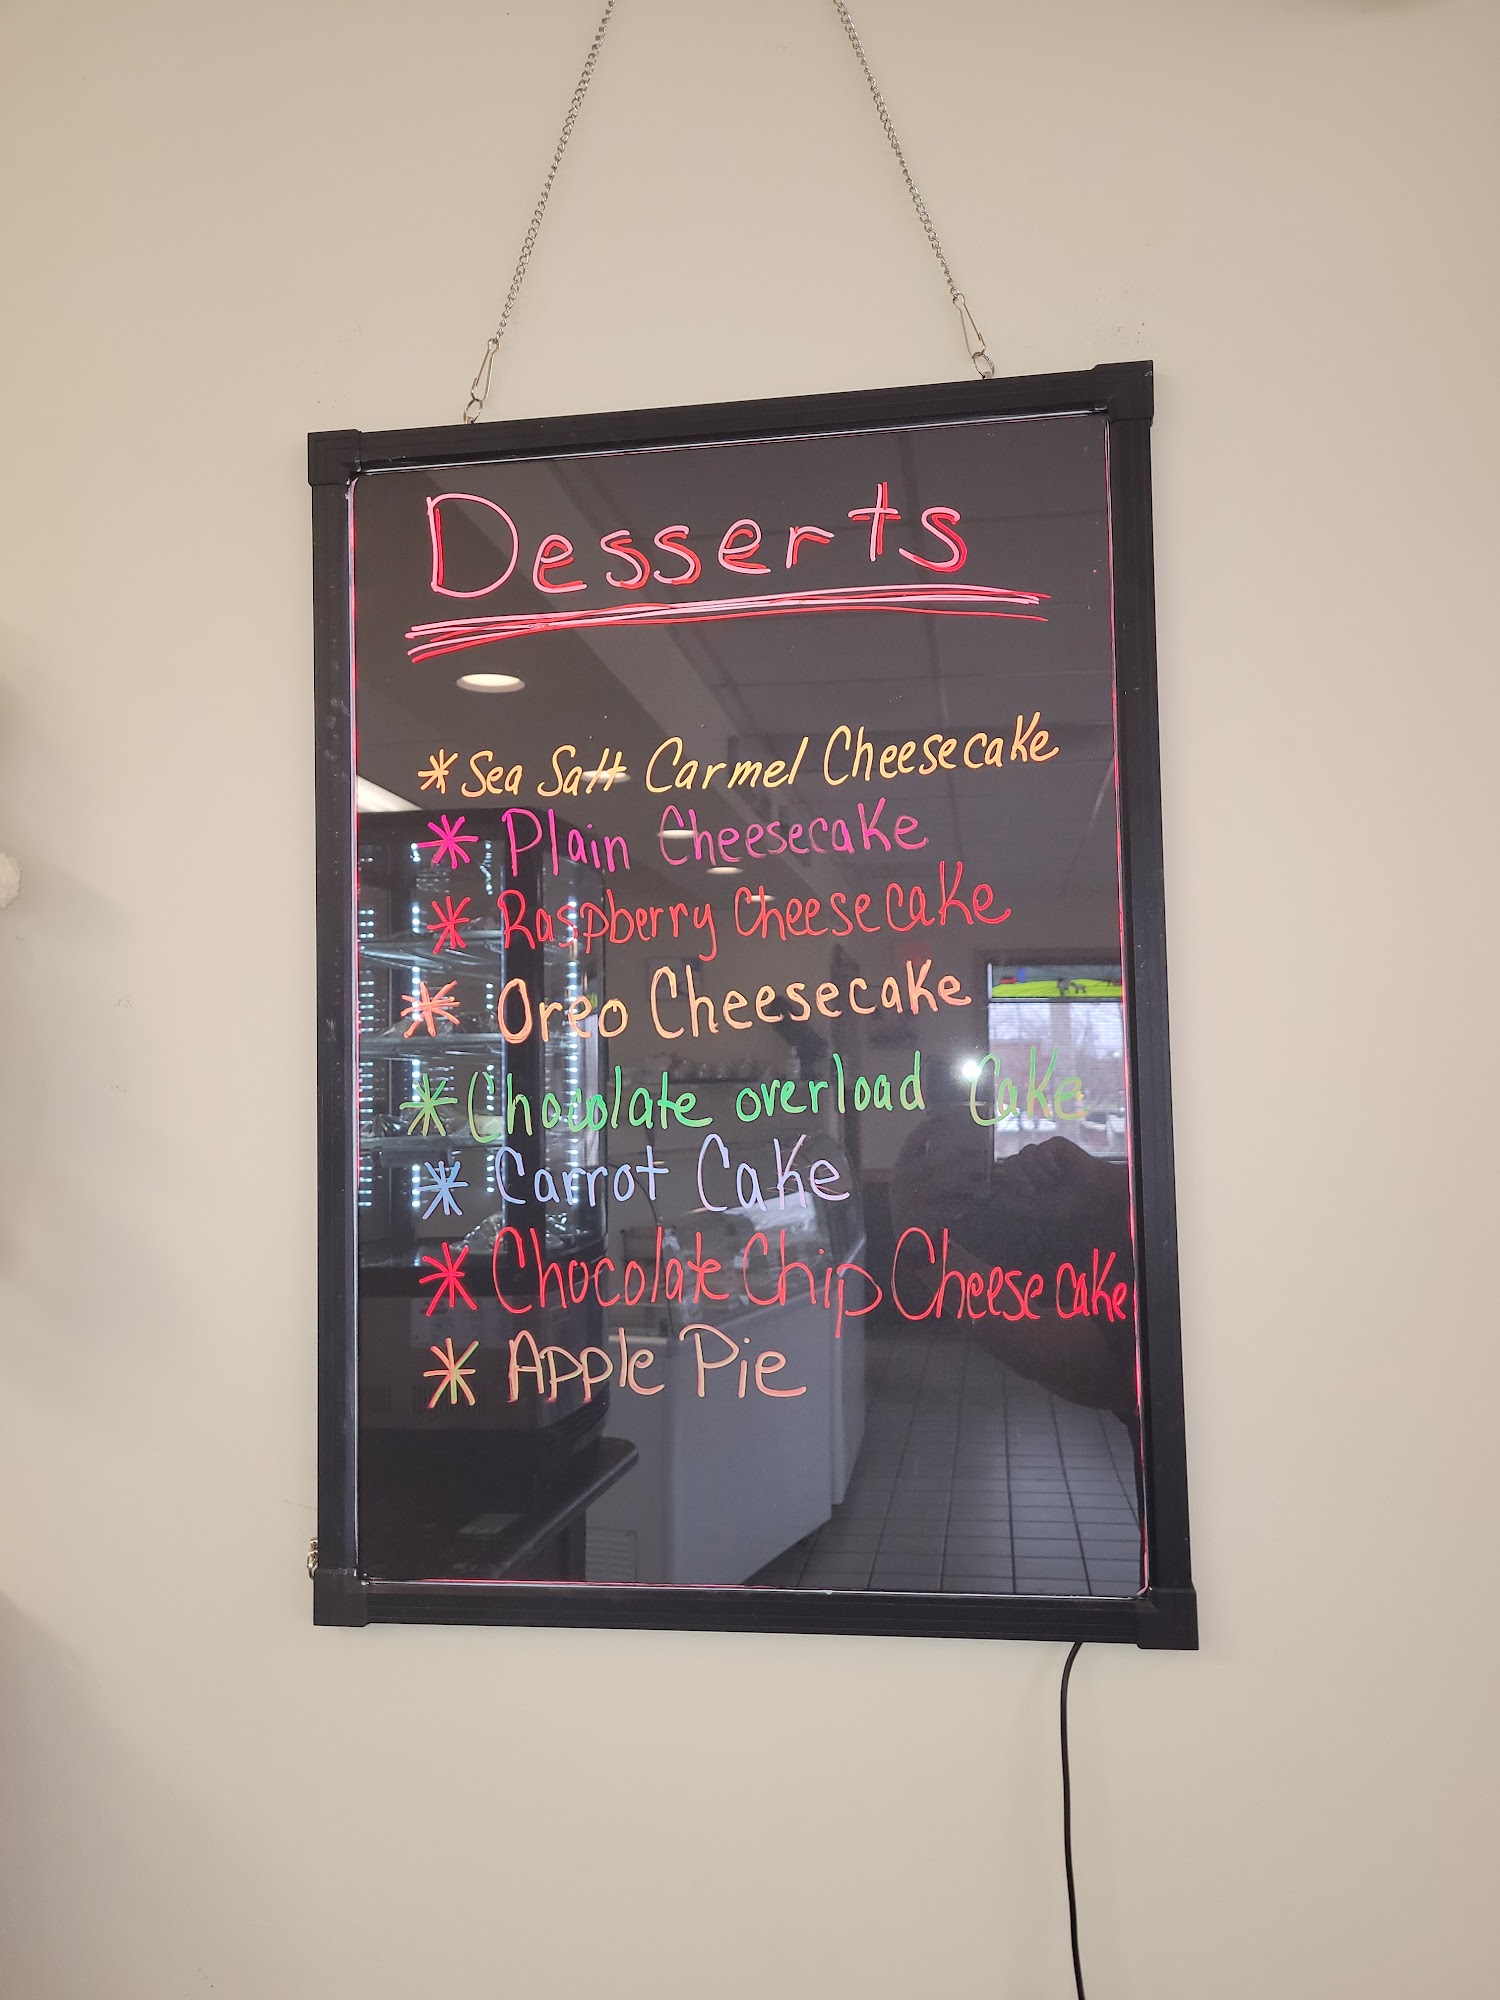 Desserts
* Sea Salt Carmel Cheesecake
* Plain Cheesecake
* Raspberry Cheesecake
* Oreo Cheesecake
* Chocolate overload Cake
* Carrot Cake
* Chocolate Chip Cheesecake
* Apple Pie